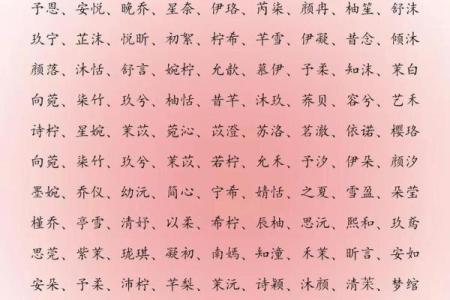 予恩、安悦、晚乔、星奈、伊珞、芮柒、颜冉、柚笙、舒沫
玖宁、芷沫、悦昕、初絮、柠希、芊雪、伊凝、昔念、倾沐
颜落、沐恬、舒言、婉柠、允歆、慕伊、予柔、知沫、茉白
向菀、柒竹、玖兮、柚恬、昔芊、沐玖、荞贝、容兮、艺禾
诗柠、星婉、茉苡、菀沁、苡澄、苏洛、茗澈、依诺、樱珞
向菀、柒竹、玖兮、茉苡、若柠、允禾、予汐、伊朵、颜汐
墨婉、乔仪、幼沅、简心、宁希、婧恬、之夏、雪盈、朵莹
槿乔、亭雪、清妤、以柔、希柠、辰柚、思沅、熙和、玖鸢
思菀、紫茉、珑琪、凝初、南嫣、知潼、禾茉、昕言、安如
安朵、予柔、沛柠、芊梨、茉沅、诗颖、沐颜、清茉、梦绾